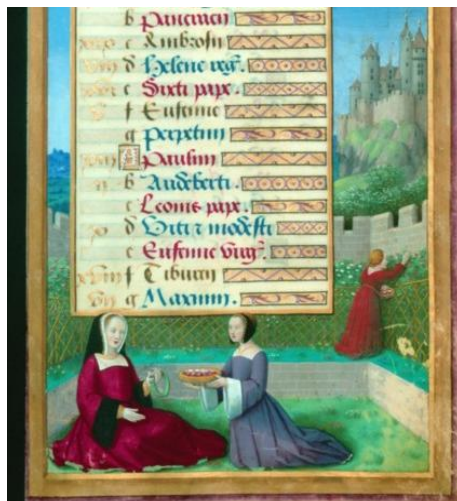 b Pancracii
c Ambrosii
d Helene virg.
e Sixti pape.
f Eufemie
g Perpetui
A Paulini
b Audeberti.
c Leonis pape.
d Viti z modesti
e Eufemie virg.
f Tiburcii
g Maximi.